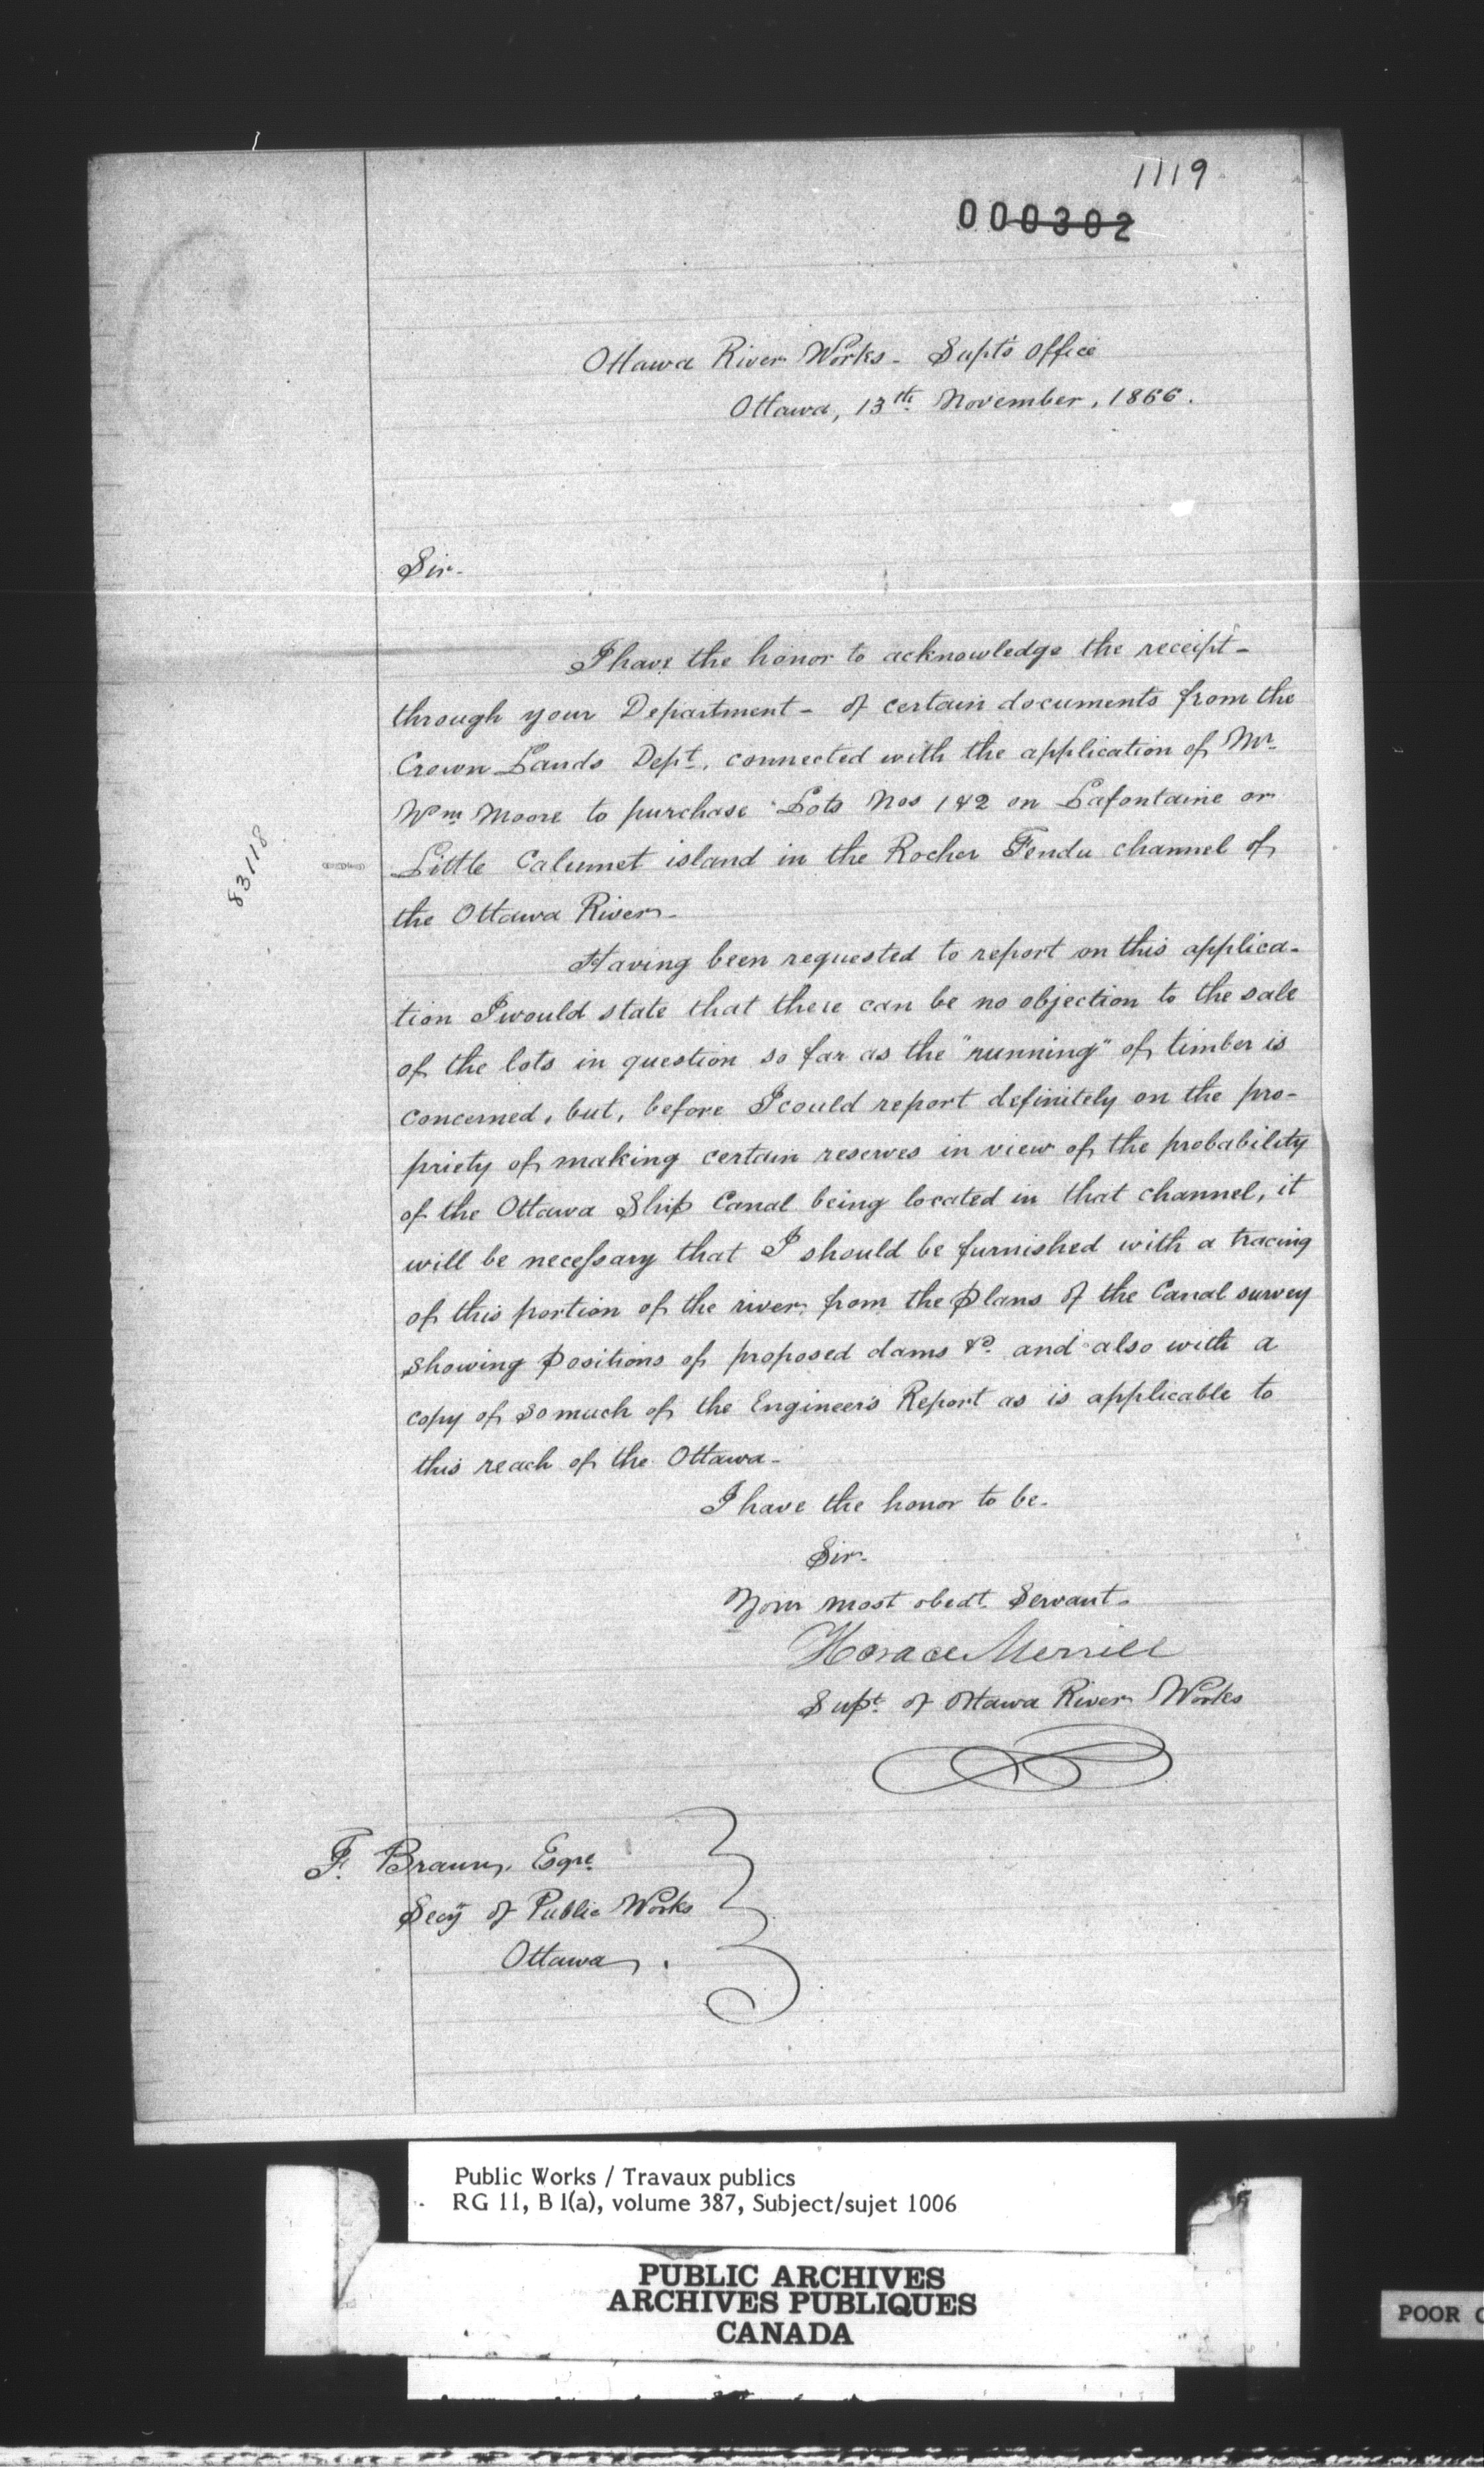 1119
000302
Ottawa River Works - Supt's Office
Ottawa, 13th November, 1866.
Sir-
I have the honor to acknowledge the receipt-
through your Department - of certain documents from the
Crown Lands Dept. connected with the application of Mr.
Wm Moore to purchase Lots Nos 1 & 2 on Lafontaine or
Little Calumet island in the Rocher Fendu channel of
the Ottawa River-
83118
Having been requested to report on this applica-
tion I would state that there can be no objection to the sale
of the lots in question so far as the "running" of timber is
concerned, but, before I could report definitely on the pro-
priety of making certain reserves in view of the probability
of the Ottawa Ship Canal being located in that channel, it
will be necessary that I should be furnished with a tracing
of this portion of the river from the plans of the Canal survey
showing positions of proposed dams &c. and also with a
copy of so much of the Engineer's Report as is applicable to
this reach of the Ottawa-
I have the honor to be.
Sir-
Your most obedt. Servant-
Horace Merrill
Supt. of Ottawa River Works
F. Braun, Esqre.
Secy of Public Works
Ottawa.
Public Works / Travaux publics
RG 11, B 1(a), volume 387, Subject/sujet 1006
PUBLIC ARCHIVES
ARCHIVES PUBLIQUES
CANADA
POOR